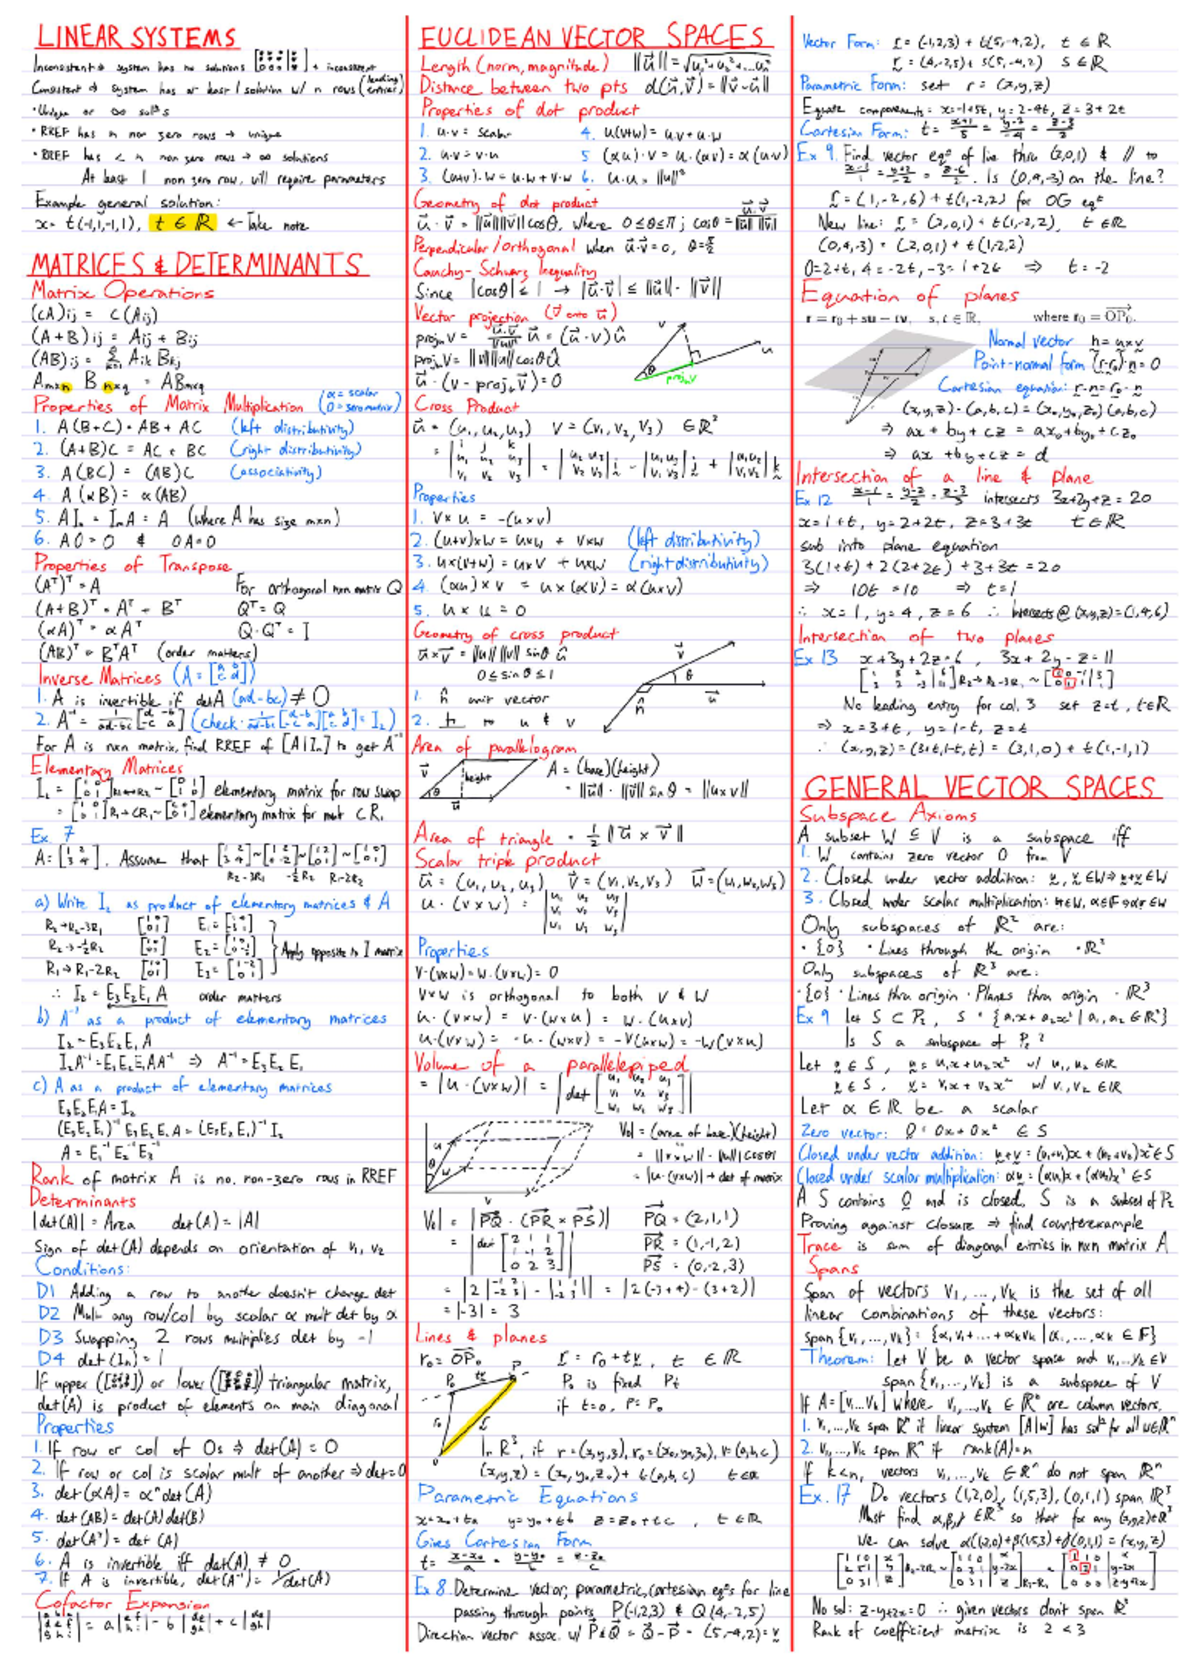 LINEAR SYSTEMS
Inconsistent → system has no solutions
Consistent → system has at least 1 solution w/ n rows (leading entries)
• Unique or ∞ solⁿs
• RREF has n non zero rows → unique
• RREF has < n non zero rows → ∞ solutions
At least 1 non zero row, will require parameters
Example general solution:
x = t(-1,1,-1,1), t ∈ ℝ ← Take note
MATRICES & DETERMINANTS
Matrix Operations
(cA)ij = c(Aij)
(A+B)ij = Aij + Bij
(AB)ij = Σ Aik Bkj
Amxn Bnxq = ABmxq
Properties of Matrix Multiplication (α = scalar, 0 = zero matrix)
1. A(B+C) = AB + AC (left distributivity)
2. (A+B)C = AC + BC (right distributivity)
3. A(BC) = (AB)C (associativity)
4. A(αB) = α(AB)
5. AIn = ImA = A (where A has size mxn)
6. A0 = 0 & 0A = 0
Properties of Transpose
(Aᵀ)ᵀ = A For orthogonal nxn matrix Q
(A+B)ᵀ = Aᵀ + Bᵀ Qᵀ = Q
(αA)ᵀ = αAᵀ Q·Qᵀ = I
(AB)ᵀ = BᵀAᵀ (order matters)
Inverse Matrices (A = [a b; c d])
1. A is invertible if detA (ad-bc) ≠ 0
2. A⁻¹ = 1/(ad-bc) [d -b; -c a] (check 1/(ad-bc) [d -b; -c a][a b; c d] = I₂)
For A is nxn matrix, find RREF of [A|In] to get A⁻¹
Elementary Matrices
elementary matrix for row swap
elementary matrix for mult CR₁
Ex 7
A = [1 2; 3 4]. Assume that [1 2; 3 4] ~ [1 2; 0 -2] ~ [1 2; 0 1] ~ [1 0; 0 1]
R₂-3R₁ -½R₂ R₁-2R₂
a) Write I₂ as product of elementary matrices & A
R₂→R₂-3R₁ [1 0; 0 1] E₁ = [1 0; -3 1]
R₂→-½R₂ [1 0; 0 1] E₂ = [1 0; 0 -½] Apply opposite to I matrix
R₁→R₁-2R₂ [1 0; 0 1] E₃ = [1 -2; 0 1]
∴ I₂ = E₃E₂E₁A order matters
b) A⁻¹ as a product of elementary matrices
I₂ = E₃E₂E₁A
I₂A⁻¹ = E₃E₂E₁AA⁻¹ ⇒ A⁻¹ = E₃E₂E₁
c) A as a product of elementary matrices
E₃E₂E₁A = I₂
(E₃E₂E₁)⁻¹E₃E₂E₁A = (E₃E₂E₁)⁻¹I₂
A = E₁⁻¹E₂⁻¹E₃⁻¹
Rank of matrix A is no. non-zero rows in RREF
Determinants
|det(A)| = Area det(A) = |A|
Sign of det(A) depends on orientation of v₁, v₂
Conditions:
D1 Adding a row to another doesn't change det
D2 Mult any row/col by scalar α mult det by α
D3 Swapping 2 rows multiplies det by -1
D4 det(In) = 1
If upper or lower triangular matrix,
det(A) is product of elements on main diagonal
Properties
1. If row or col of 0s ⇒ det(A) = 0
2. If row or col is scalar mult of another ⇒ det=0
3. det(αA) = αⁿdet(A)
4. det(AB) = det(A)det(B)
5. det(Aᵀ) = det(A)
6. A is invertible iff det(A) ≠ 0
7. If A is invertible, det(A⁻¹) = 1/det(A)
Cofactor Expansion
|a b c; d e f; g h i| = a|e f; h i| - b|d f; g i| + c|d e; g h|
EUCLIDEAN VECTOR SPACES
Length (norm, magnitude) ||u|| = √u₁²+u₂²+...uₙ²
Distance between two pts d(u,v) = ||v-u||
Properties of dot product
1. u·v = scalar 4. u(v+w) = u·v+u·w
2. u·v = v·u 5 (αu)·v = u·(αv) = α(u·v)
3. (u+v)·w = u·w + v·w 6. u·u = ||u||²
Geometry of dot product
u·v = ||u||||v||cosθ, where 0≤θ≤π; cosθ = u·v/||u||||v||
Perpendicular/orthogonal when u·v=0, θ=π/2
Cauchy-Schwarz Inequality
Since |cosθ| ≤ 1 → |u·v| ≤ ||u||·||v||
Vector projection (v onto u)
projᵤv = u·v/||u||² u = (u·v)û
projᵤv = ||v||cosθû
u·(v - projᵤv) = 0
v
u
θ
projᵤv
Cross Product
u = (u₁, u₂, u₃) v = (v₁, v₂, v₃) ∈ℝ³
= |i j k; u₁ u₂ u₃; v₁ v₂ v₃| = |u₂ u₃; v₂ v₃| i - |u₁ u₃; v₁ v₃| j + |u₁ u₂; v₁ v₂| k
Properties
1. v×u = -(u×v)
2. (u+v)×w = u×w + v×w (left distributivity)
3. u×(v+w) = u×v + u×w (right distributivity)
4. (αu)×v = u×(αv) = α(u×v)
5. u×u = 0
Geometry of cross product
u×v = ||u||||v||sinθ n̂
0≤sinθ≤1
1. n̂ unit vector
2. n̂ ⊥ to u & v
Area of parallelogram
v height u
A = (base)(height)
= ||u||·||v||sinθ = ||u×v||
Area of triangle = ½||u×v||
Scalar triple product
u = (u₁, u₂, u₃) v = (v₁, v₂, v₃) w = (w₁, w₂, w₃)
u·(v×w) = |u₁ u₂ u₃; v₁ v₂ v₃; w₁ w₂ w₃|
Properties
v·(v×w) = w·(v×w) = 0
v×w is orthogonal to both v & w
u·(v×w) = v·(w×u) = w·(u×v)
u·(v×w) = -u·(w×v) = -v(u×w) = -w(v×u)
Volume of a parallelepiped
= |u·(v×w)| = |det [u₁ u₂ u₃; v₁ v₂ v₃; w₁ w₂ w₃]|
Vol = (area of base)(height)
= ||v×w||·||u|||cosθ|
= |u·(v×w)| → det of matrix
Vol = |PQ·(PR×PS)| PQ = (2,1,1)
= |det [2 1 1; 1 -1 2; 0 -2 3]| PR = (1,-1,2)
PS = (0,-2,3)
= |2|-1 2; -2 3| - |1 1; -2 3|| = |2(-3+4)-(3+2)|
= |-3| = 3
Lines & planes
r₀ = OP₀ r = r₀+tv, t ∈ ℝ
P₀ is fixed pt
if t=0, P=P₀
In ℝ³, if r=(x,y,z), r₀=(x₀,y₀,z₀), v=(a,b,c)
(x,y,z) = (x₀,y₀,z₀) + t(a,b,c) t∈ℝ
Parametric Equations
x=x₀+ta y=y₀+tb z=z₀+tc, t∈ℝ
Gives Cartesian Form
t = x-x₀/a = y-y₀/b = z-z₀/c
Ex 8. Determine vector, parametric, cartesian eqⁿs for line
passing through points P(-1,2,3) & Q(4,-2,5)
Direction vector assoc. w/ P&Q = Q-P = (5,-4,2) = v
Vector Form: r = (-1,2,3) + t(5,-4,2), t ∈ ℝ
r = (4,-2,5) + s(5,-4,2) s ∈ ℝ
Parametric Form: set r = (x,y,z)
Equate components: x=-1+5t, y=2-4t, z=3+2t
Cartesian Form: t = x+1/5 = y-2/-4 = z-3/2
Ex 9. Find vector eqⁿ of line thru (2,0,1) & // to
x-1/1 = y+2/-2 = z-6/2. Is (0,4,-3) on the line?
r = (1,-2,6) + t(1,-2,2) for OG eqⁿ
New line: r = (2,0,1) + t(1,-2,2), t∈ℝ
(0,4,-3) = (2,0,1) + t(1,-2,2)
0=2+t, 4=-2t, -3=1+2t ⇒ t=-2
Equation of planes
r = r₀ + su + tv, s, t ∈ ℝ, where r₀ = OP₀.
Normal vector n=u×v
Point-normal form (r-r₀)·n=0
Cartesian equation: r·n=r₀·n
(x,y,z)·(a,b,c) = (x₀,y₀,z₀)(a,b,c)
⇒ ax+by+cz = ax₀+by₀+cz₀
⇒ ax+by+cz = d
Intersection of a line & plane
Ex 12 x-1/1 = y-2/2 = z-3/3 intersects 3x+2y+z=20
x=1+t, y=2+2t, z=3+3t t∈ℝ
sub into plane equation
3(1+t)+2(2+2t)+3+3t=20
⇒ 10t=10 ⇒ t=1
∴ x=1, y=4, z=6 ∴ Intersects@(x,y,z)=(1,4,6)
Intersection of two planes
Ex 13 x+3y+2z=6, 3x+2y-z=11
No leading entry for col. 3 set z=t, t∈ℝ
⇒ x=3+t, y=1-t, z=t
∴ (x,y,z)=(3+t,1-t,t) = (3,1,0) + t(1,-1,1)
GENERAL VECTOR SPACES
Subspace Axioms
A subset W ⊆ V is a subspace iff
1. W contains zero vector 0 from V
2. Closed under vector addition: u, v ∈W⇒u+v∈W
3. Closed under scalar multiplication: u∈W, α∈F⇒αu∈W
Only subspaces of ℝ² are:
• {0} • Lines through the origin • ℝ²
Only subspaces of ℝ³ are:
• {0} • Lines thru origin • Planes thru origin • ℝ³
Ex 9 let S ⊂ P₂, S = {a₁x+a₂x² | a₁, a₂ ∈ℝ}
Is S a subspace of P₂?
Let u∈S, u=u₁x+u₂x² w/ u₁,u₂∈ℝ
v∈S, v=v₁x+v₂x² w/ v₁,v₂∈ℝ
Let α∈ℝ be a scalar
Zero vector: 0=0x+0x² ∈S
Closed under vector addition: u+v = (u₁+v₁)x+(u₂+v₂)x²∈S
Closed under scalar multiplication: αu = (αu₁)x+(αu₂)x² ∈S
A S contains 0 and is closed, S is a subset of P₂
Proving against closure ⇒ find counterexample
Trace is sum of diagonal entries in nxn matrix A
Spans
Span of vectors v₁, ..., vk is the set of all
linear combinations of these vectors:
span{v₁,...,vk} = {α₁v₁+...+αkvk | α₁,...,αk ∈ F}
Theorem: Let V be a vector space and v₁,...vk∈V
span{v₁,...,vk} is a subspace of V
If A=[v₁...vk] where v₁,...,vk ∈ℝⁿ are column vectors.
1. v₁,...,vk span ℝⁿ if linear system [A|w] has solⁿ for all w∈ℝⁿ
2. v₁,...,vk span ℝⁿ if rank(A)=n
If k<n, vectors v₁,...,vk ∈ℝⁿ do not span ℝⁿ
Ex. 17 Do vectors (1,2,0), (1,5,3), (0,1,1) span ℝ³
Must find α,β,γ ∈ℝ so that for any (x,y,z)∈ℝ³
we can solve α(1,2,0)+β(1,5,3)+γ(0,1,1)=(x,y,z)
No sol: z-y+2x=0 ∴ given vectors don't span ℝ³
Rank of coefficient matrix is 2<3